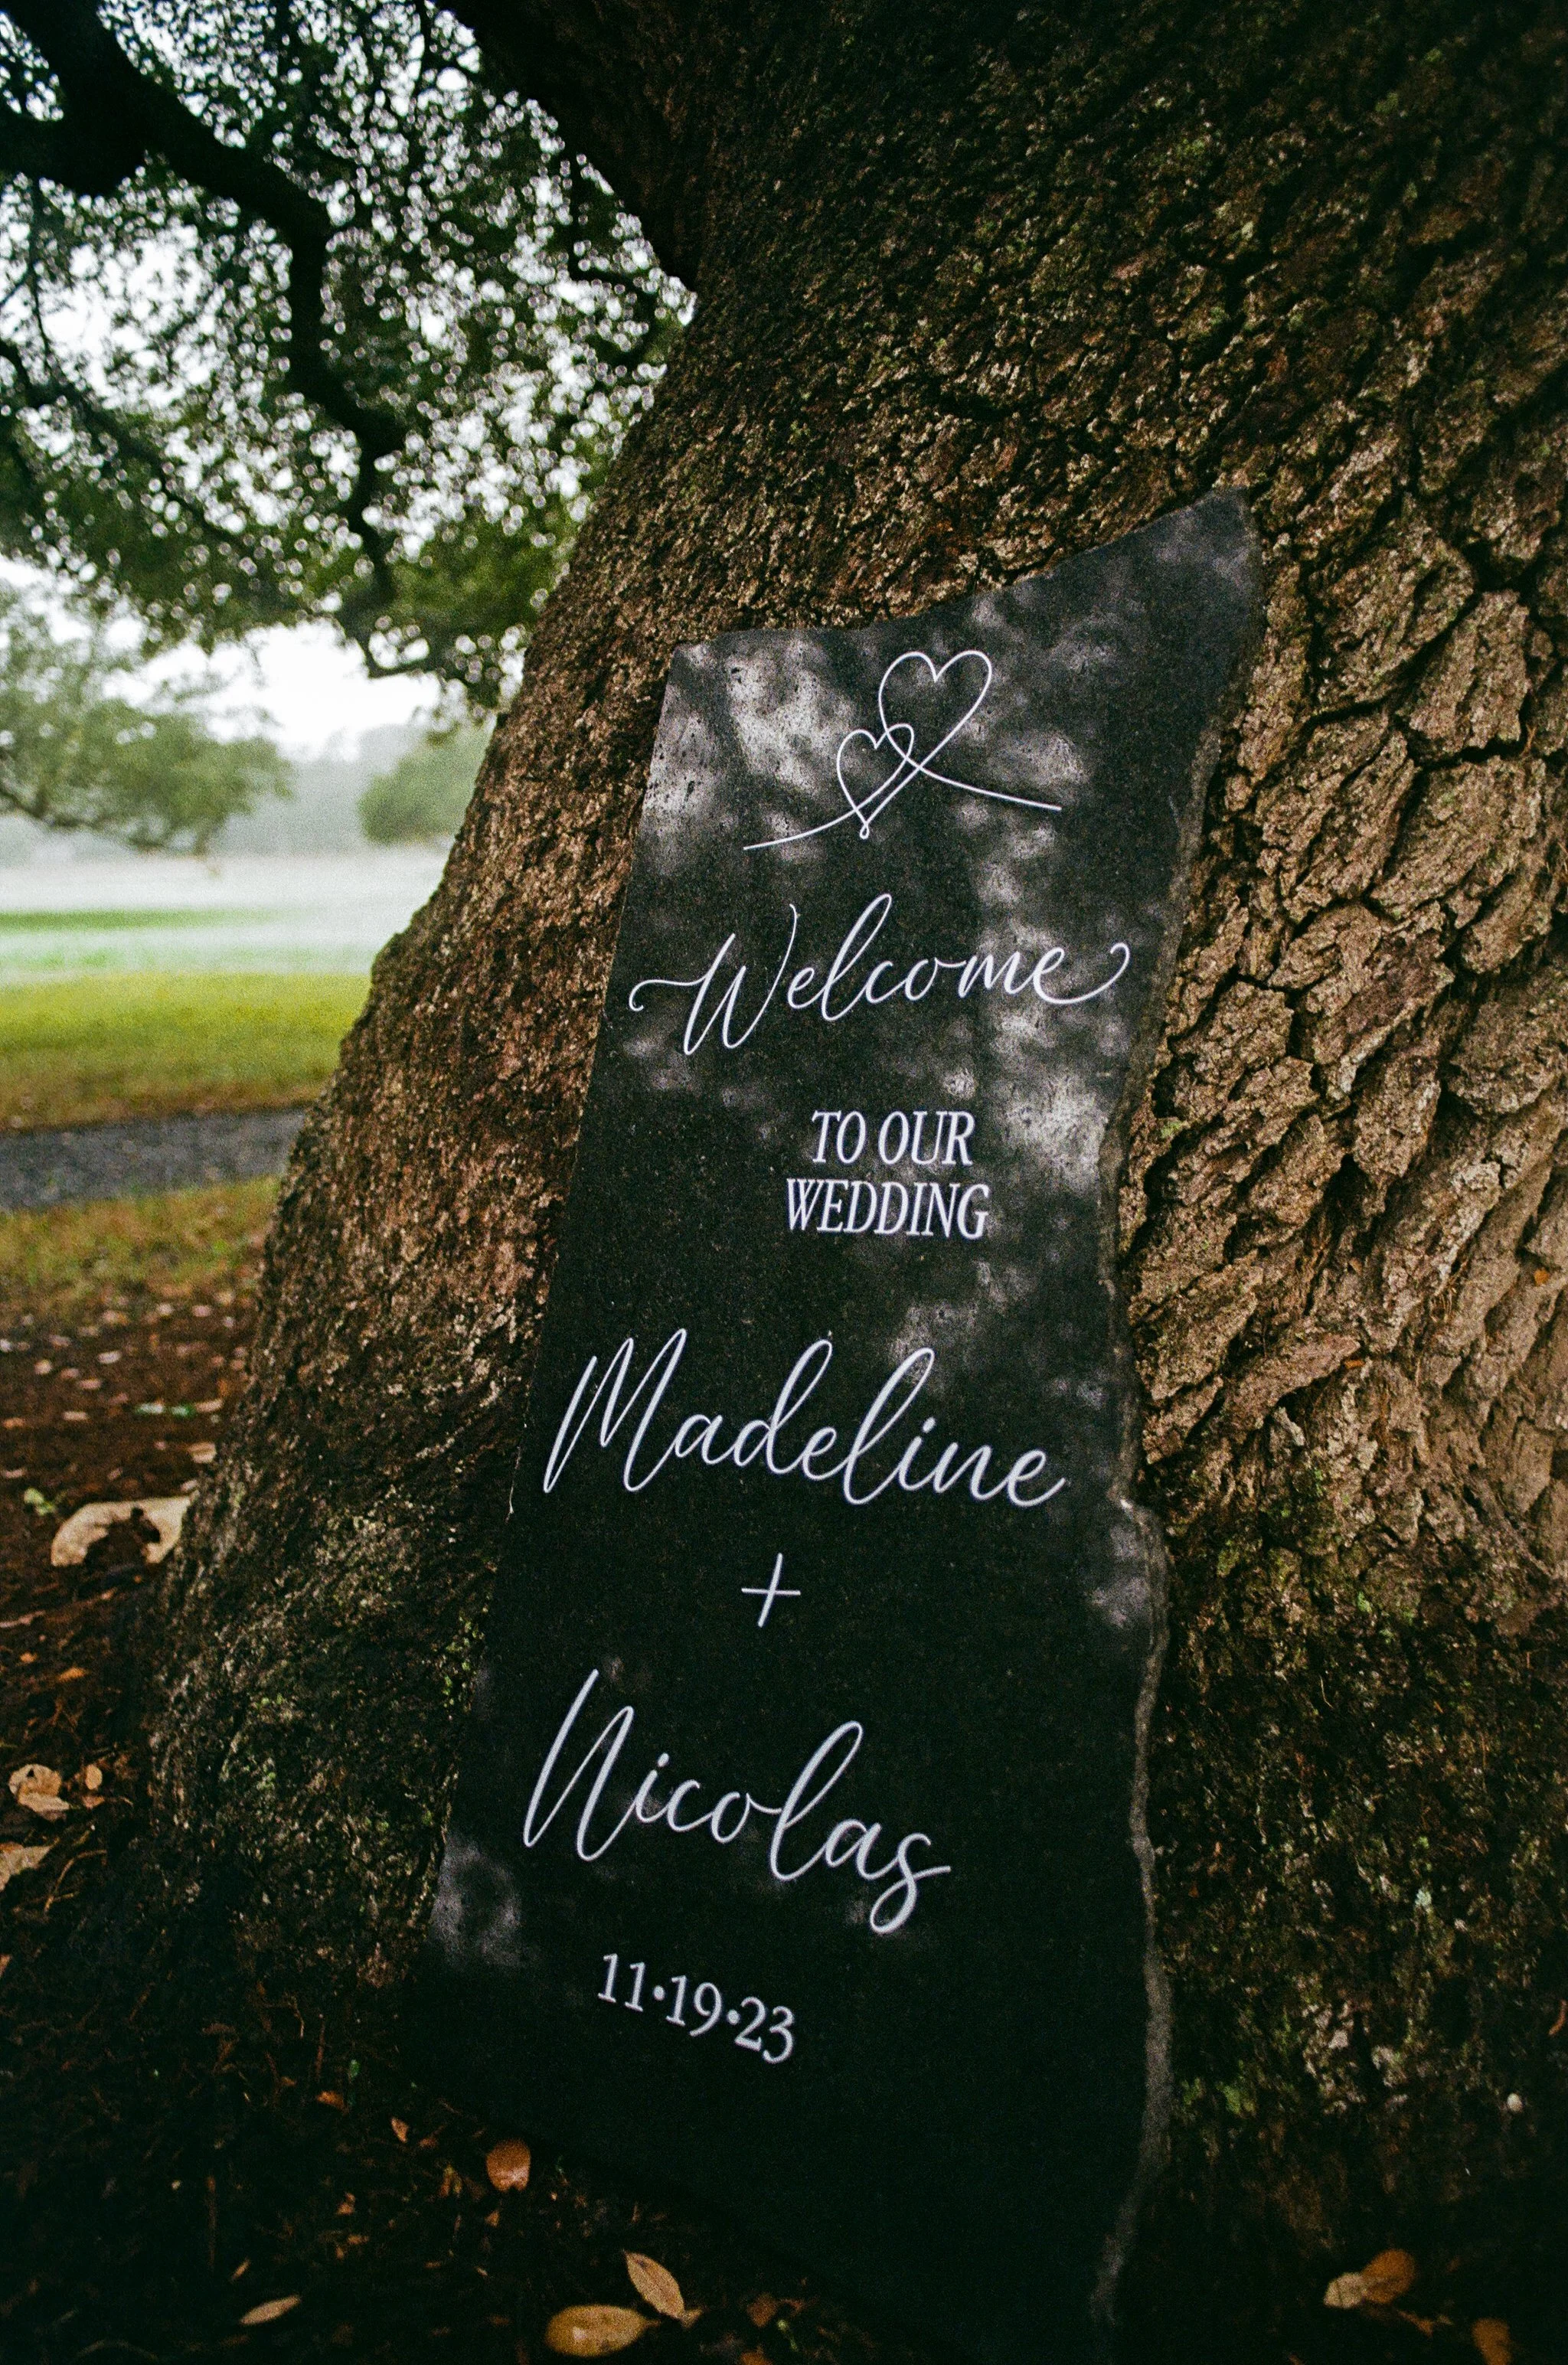 Welcome
TO OUR
WEDDING
Madeline
+
Nicolas
11•19•23